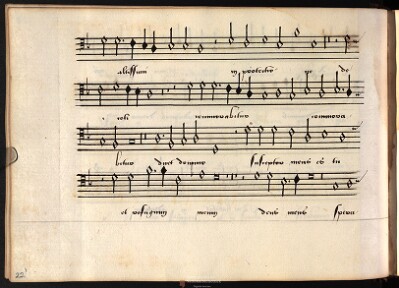 altissimi in protectione dei
celi commorabitur commora
bitur dicet domino susceptor meus es tu
et refugium meum deus meus spera
22